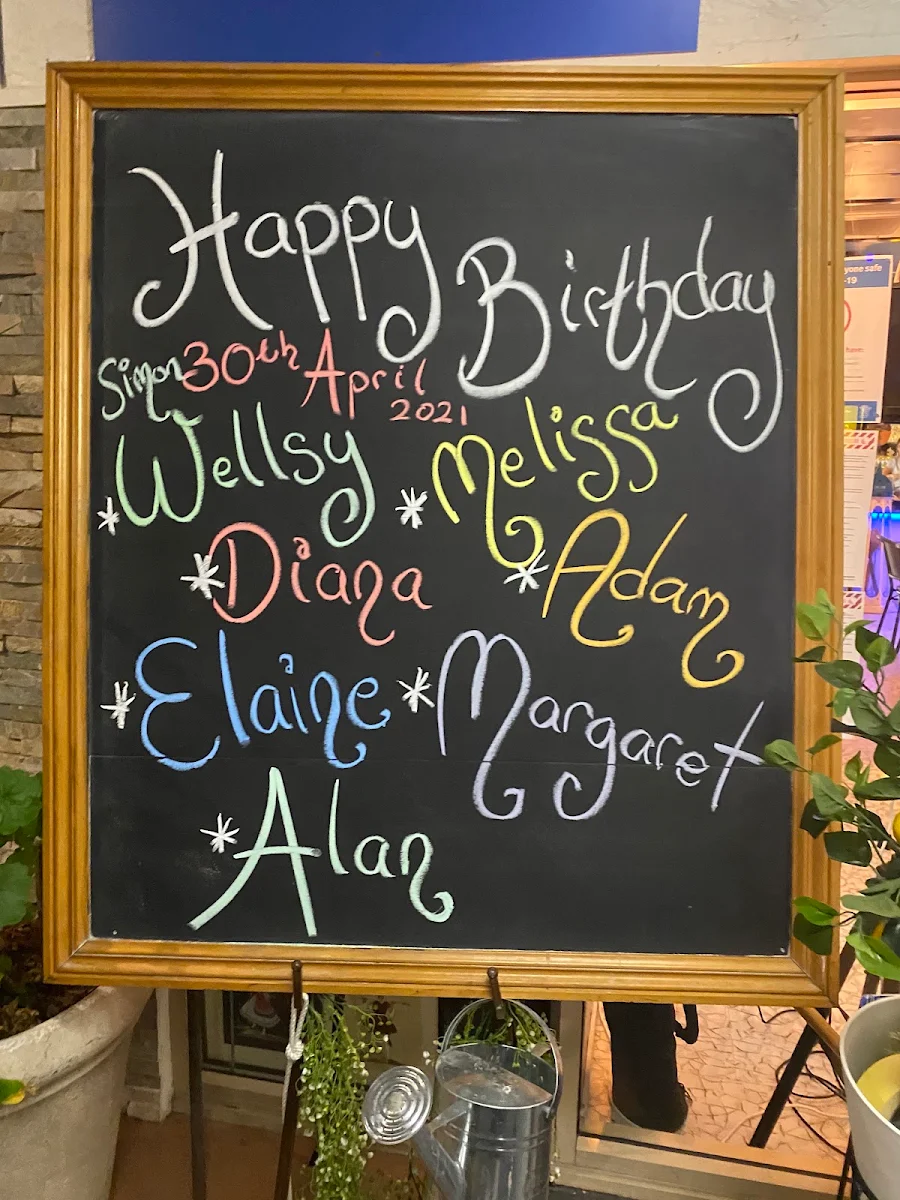 Happy Birthday
Simon 30th April
2021
Wellsy
* Melissa
* Diana
* Adam
* Elaine
* Margaret
* Alan
yone safe
-19
have: